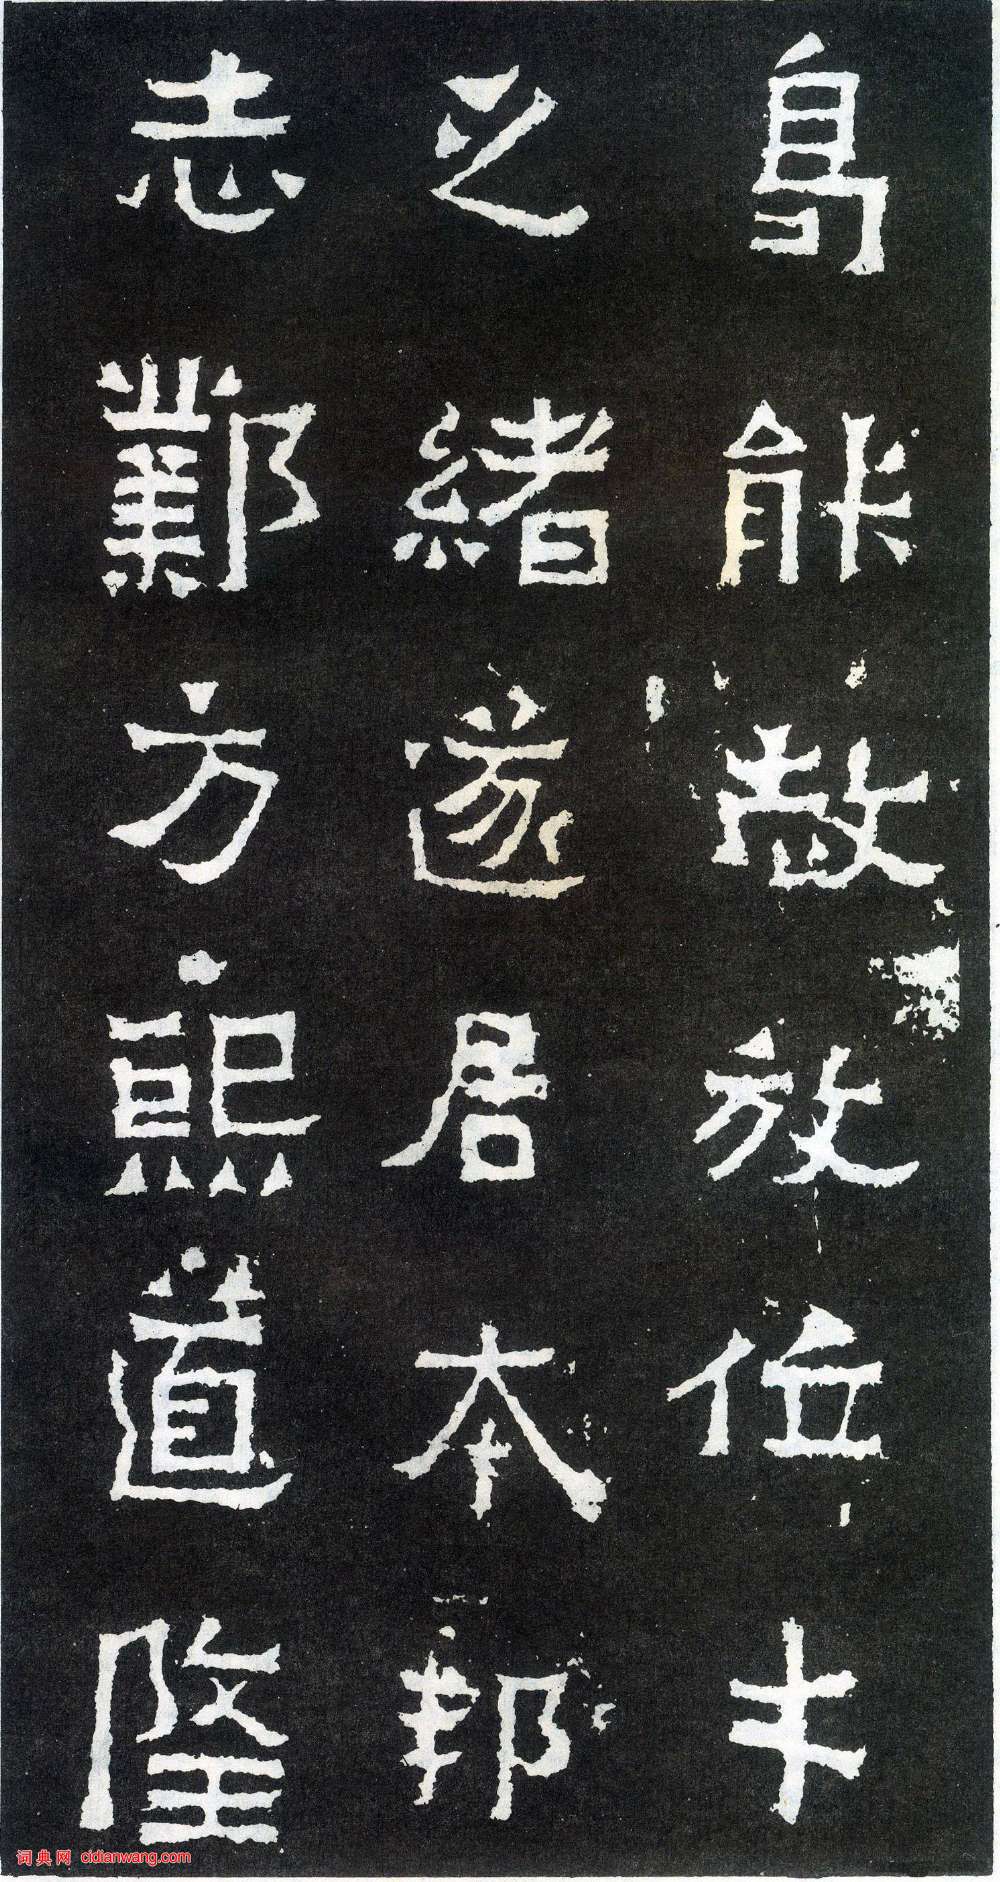 能放位
之緒遂居本邦
志鄴方熙道隆
词典网 cidianwang.com